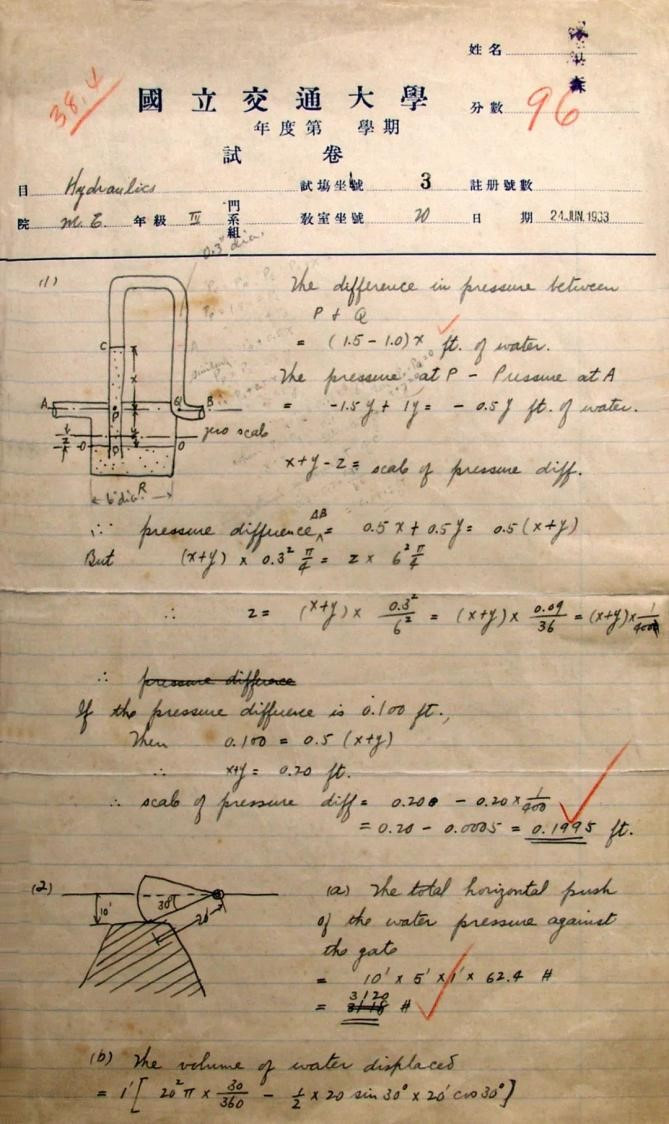 姓名
國立交通大學
38.4
分數 96
年度第 學期
試 卷
目 Hydraulics 試場坐號 3 註册號數
院 M.E. 年級 IV 門系組 教室坐號 20 日期 24 JUN. 1933
0.3" dia.
(1)
The difference in pressure between
P + Q
= (1.5 - 1.0) x ft. of water.
The pressure at P - Pressure at A
= -1.5 y + 1y = - 0.5 y ft. of water.
C
A
P
Q
B
zero scale
O
D
O
R
6" dia.
x+y-z = scale of pressure diff.
∴ pressure difference AB = 0.5 x + 0.5 y = 0.5 (x+y)
But (x+y) x 0.3² π/4 = z x 6² π/4
∴ z = (x+y) x 0.3²/6² = (x+y) x 0.09/36 = (x+y) x 1/400
∴ pressure difference
If the pressure difference is 0.100 ft.,
Then 0.100 = 0.5 (x+y)
∴ x+y = 0.20 ft.
∴ scale of pressure diff = 0.200 - 0.20 x 1/400
= 0.20 - 0.0005 = 0.1995 ft.
(2)
10'
30°
20'
(a) The total horizontal push
of the water pressure against
the gate
= 10' x 5' x 1' x 62.4 #
= 3120 #
(b) The volume of water displaced
= 1' [ 20² π x 30/360 - 1/2 x 20 sin 30° x 20' cos 30° ]